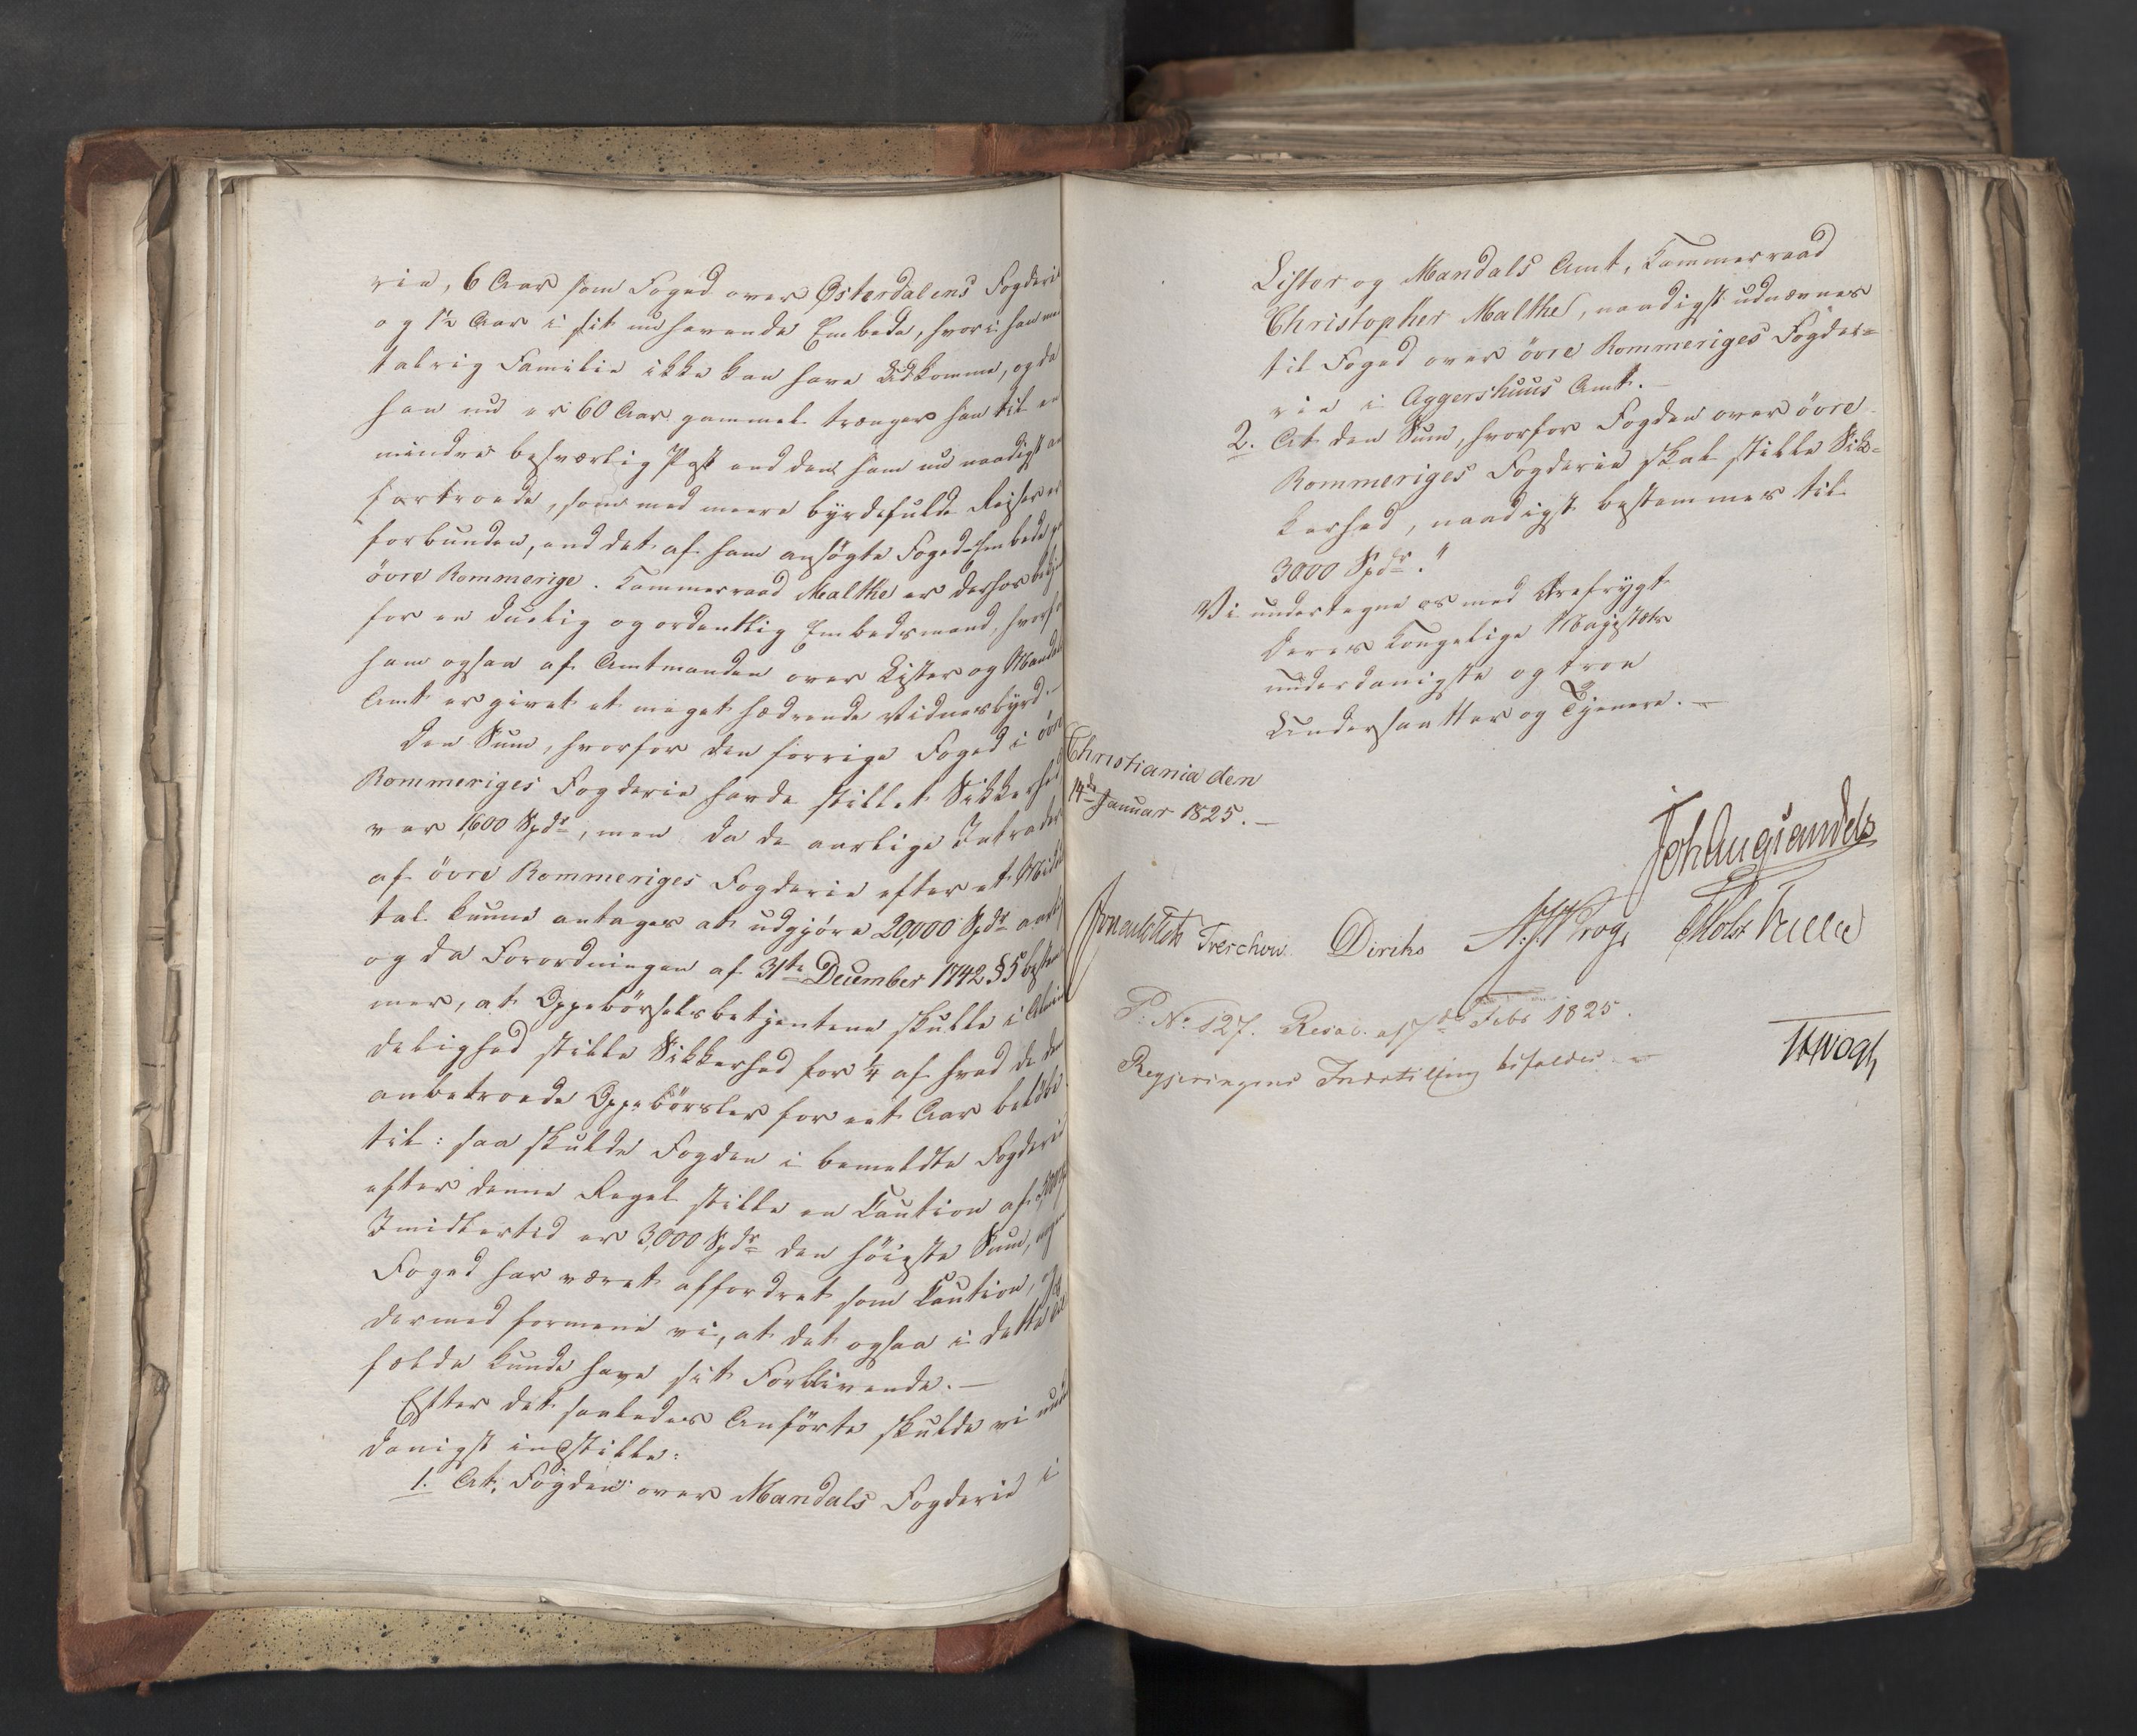 rie, 6 Aar som Foged over Østerdalens Fogderie
og 1½ Aar i sit nuhavende Embede, hvori han med
talrig Familie ikke kan have Udkomme, og da
han nu er 60 Aar gammel trænger han til en
mindre besværlig Post end den ham nu naadigst an-
fortroede, som med meere byrdefulde Reiser er
forbunden, end det af ham ansøgte Foged-Embede
övre Rommerige. Kammerraad Malthe er derhos bekjendt
for en duelig og ordentlig Embedsmand, hvorfor
ham ogsaa af Amtmanden over Lister og Mandals
Amt er givet et meget hædrende Vidnesbyrd. —
Den Sum, hvorfor den forrige Foged i övre
Rommeriges Fogderie havde stillet Sikkerhed
var 1,600 Spdr, men da de aarlige Intrader
af övre Rommeriges Fogderie efter et Middel
tal kunne antages at udgjøre 20,000 Spdr aarlig
og da Forordningen af 31te December 1742 § 5 bestem
mer, at Oppebörselsbetjentene skulle i Almin
delighed stille Sikkerhed for ¼ af hvad de dem
anbetroede Oppebörsler for eet Aar beløbe
til: saa skulde Fogden i bemeldte Fogderie
efter denne Regel stille en Caution af 5000 Spdr
Imidlertid er 3,000 Spdr den höieste Sum, nogen
Foged har været affordret som Caution, og
dermed formene vi, at det ogsaa i dette Til
fælde kunde have sit Forblivende. —
Efter det saaledes Anførte skulde vi under
danigst indstille:
1. At Fogden over Mandals Fogderie i
Lister og Mandals Amt, Kammerraad
Christopher Malthe, naadigst udnævnes
til Foged over övre Rommeriges Fogder=
rie i Aggershuus Amt. —
2. At den Sum, hvorfor Fogden over övre
Rommeriges Fogderie skal stille Sik=
kerhed, naadigst bestemmes til
3000 Spdr."
Vi undertegne os med Ærefrygt
Deres Kongelige Majestæts
underdanigste og troe
Undersaatter og Tjenere. —
Christiania den
14de Januar 1825. —
Joh Aug Sandels
Jonas Collett Treschow Diriks A. J. Krog P Motzfeldt
P: No 127. Resol. af 7de Febr 1825.
Regjeringens Indstilling bifaldes.
JHVogt